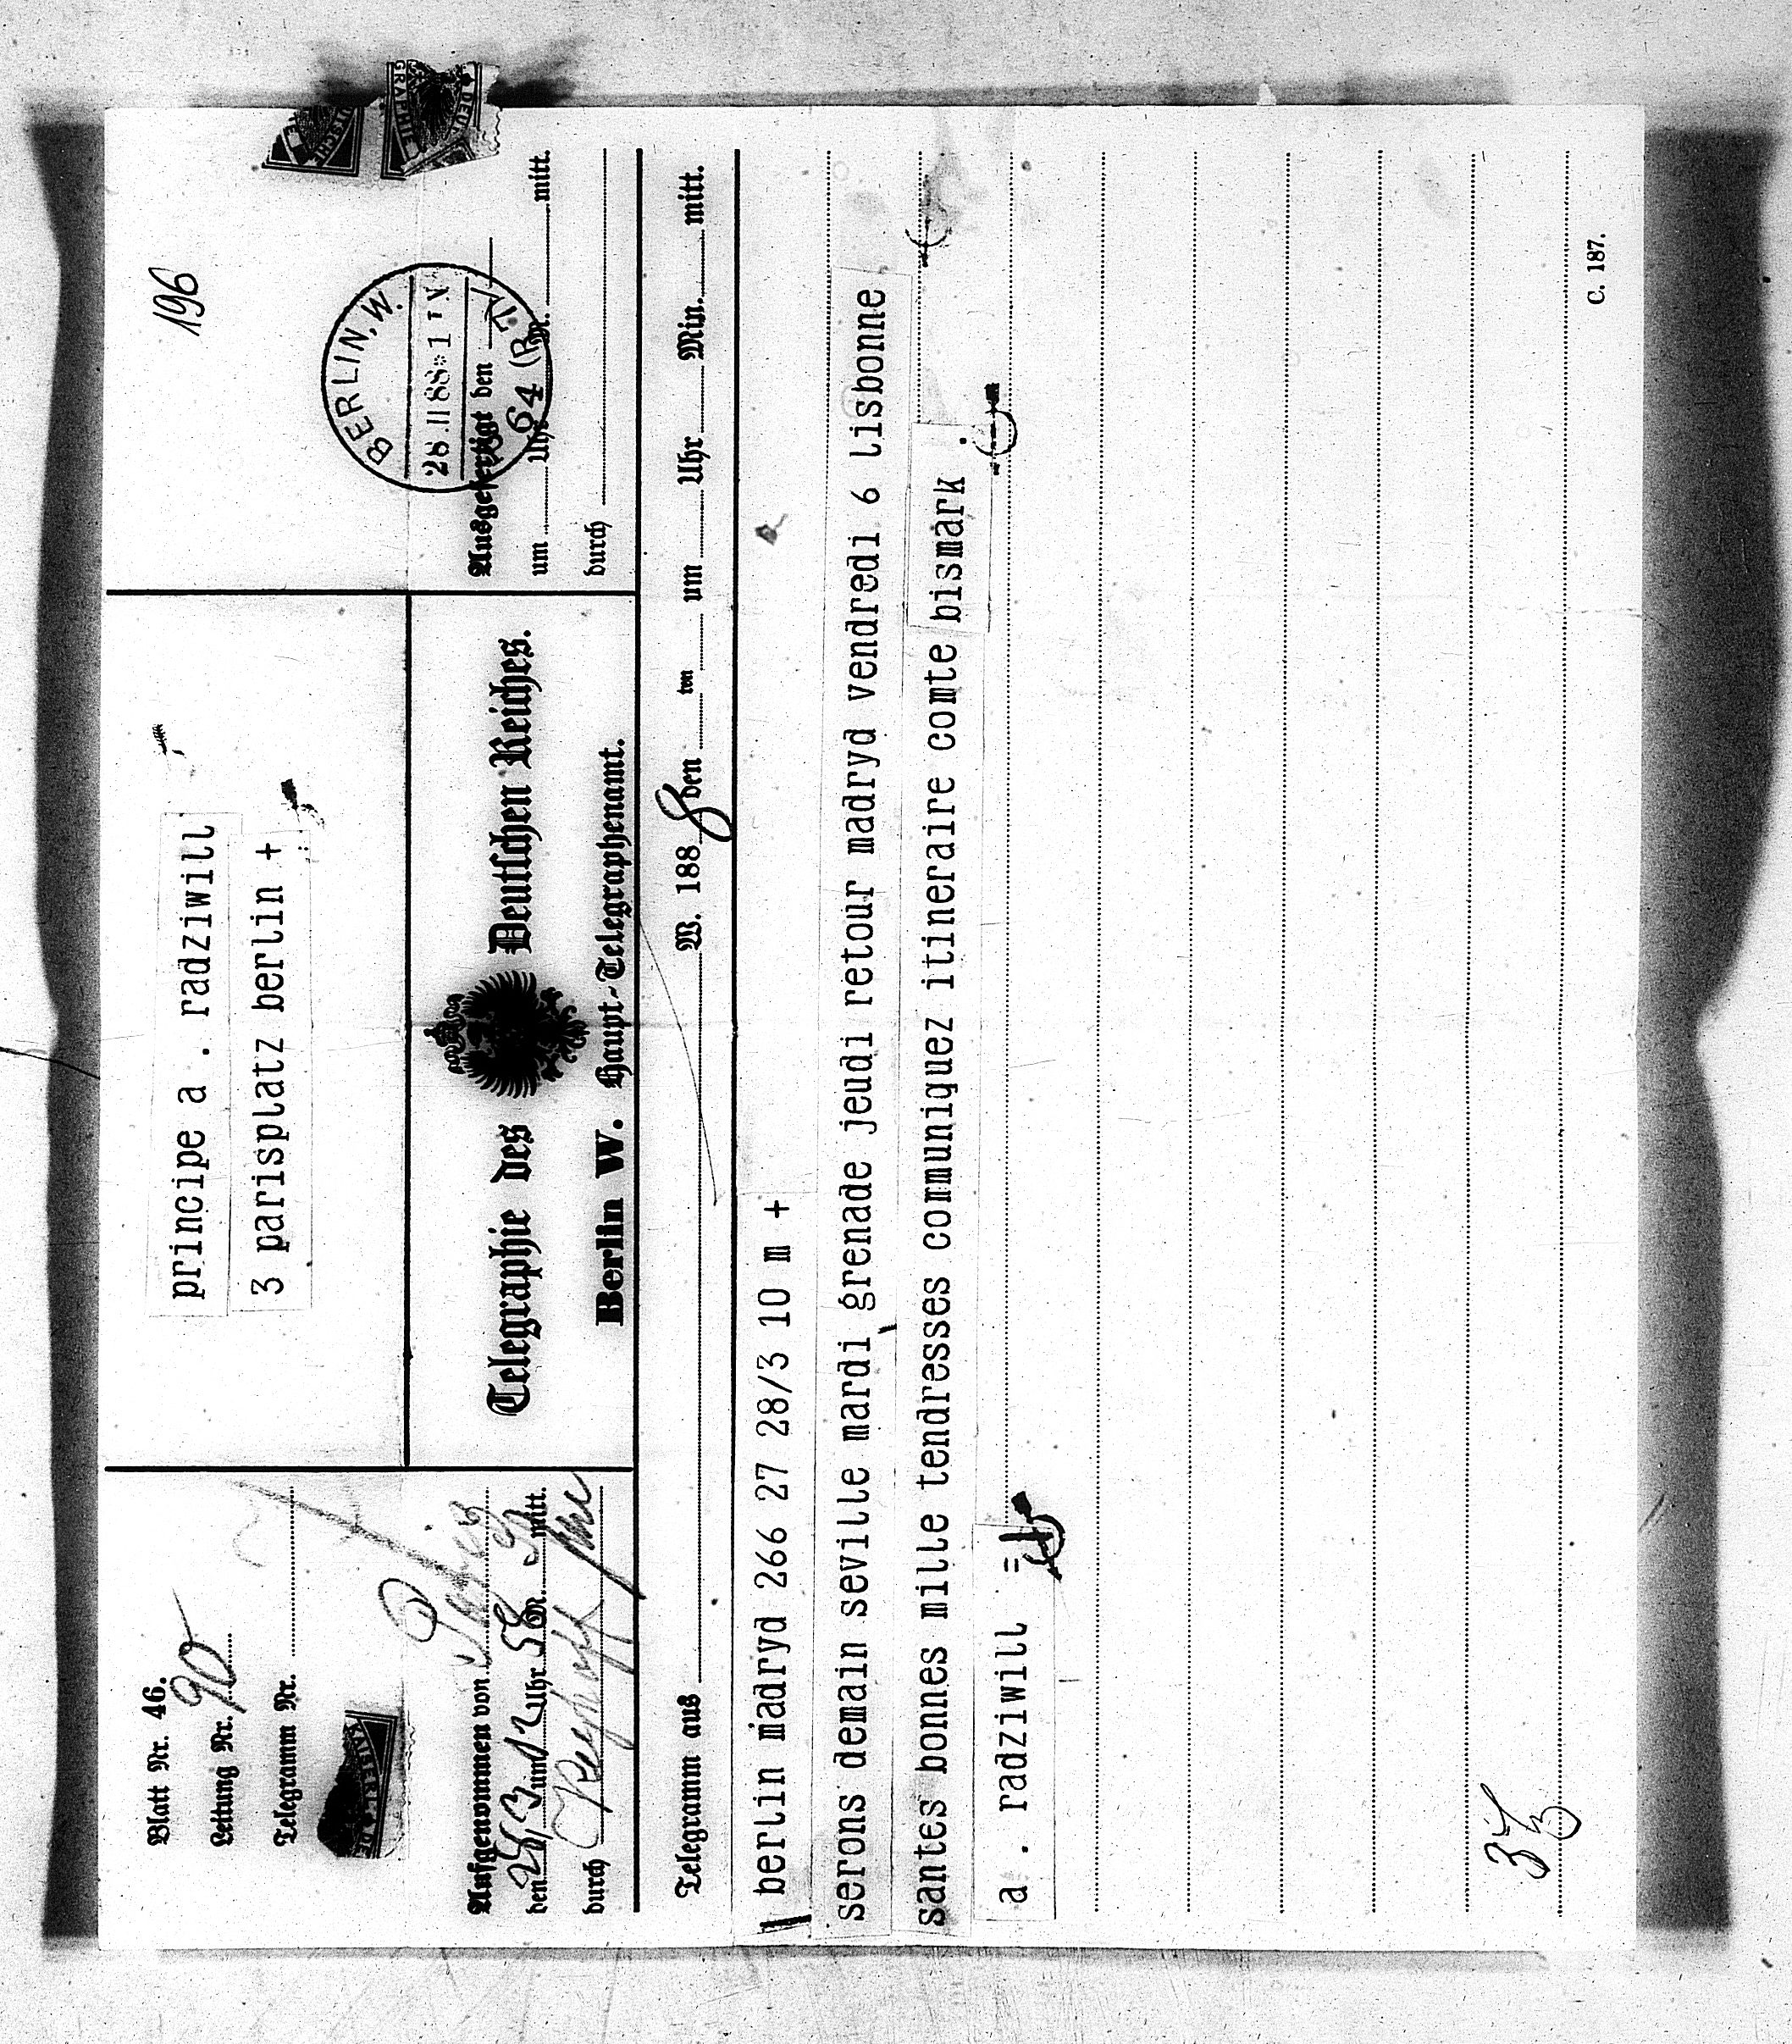 196
Blatt Nr. 46.
Leitung Nr. 90
Telegramm Nr.
principe a . radziwill
3 parisplatz berlin +
BERLIN, W.
28.
88*1
64
Aufgenommen von Paris
den 28/3 um 12 Uhr 58 M. mitt.
durch
Telegraphie des Deutschen Reiches.
Berlin W. Haupt-Telegraphenamt.
Ausgefertigt den
um Uhr M. mitt.
durch
Telegramm aus W. 1888 den ten um Uhr Min. mitt.
berlin madryd 266 27 28/3 10 m +
serons demain seville mardi grenade jeudi retour madryd vendredi 6 lisbonne
santes bonnes mille tendresses communiquez itineraire comte bismark .
a . radziwill =
C. 187.